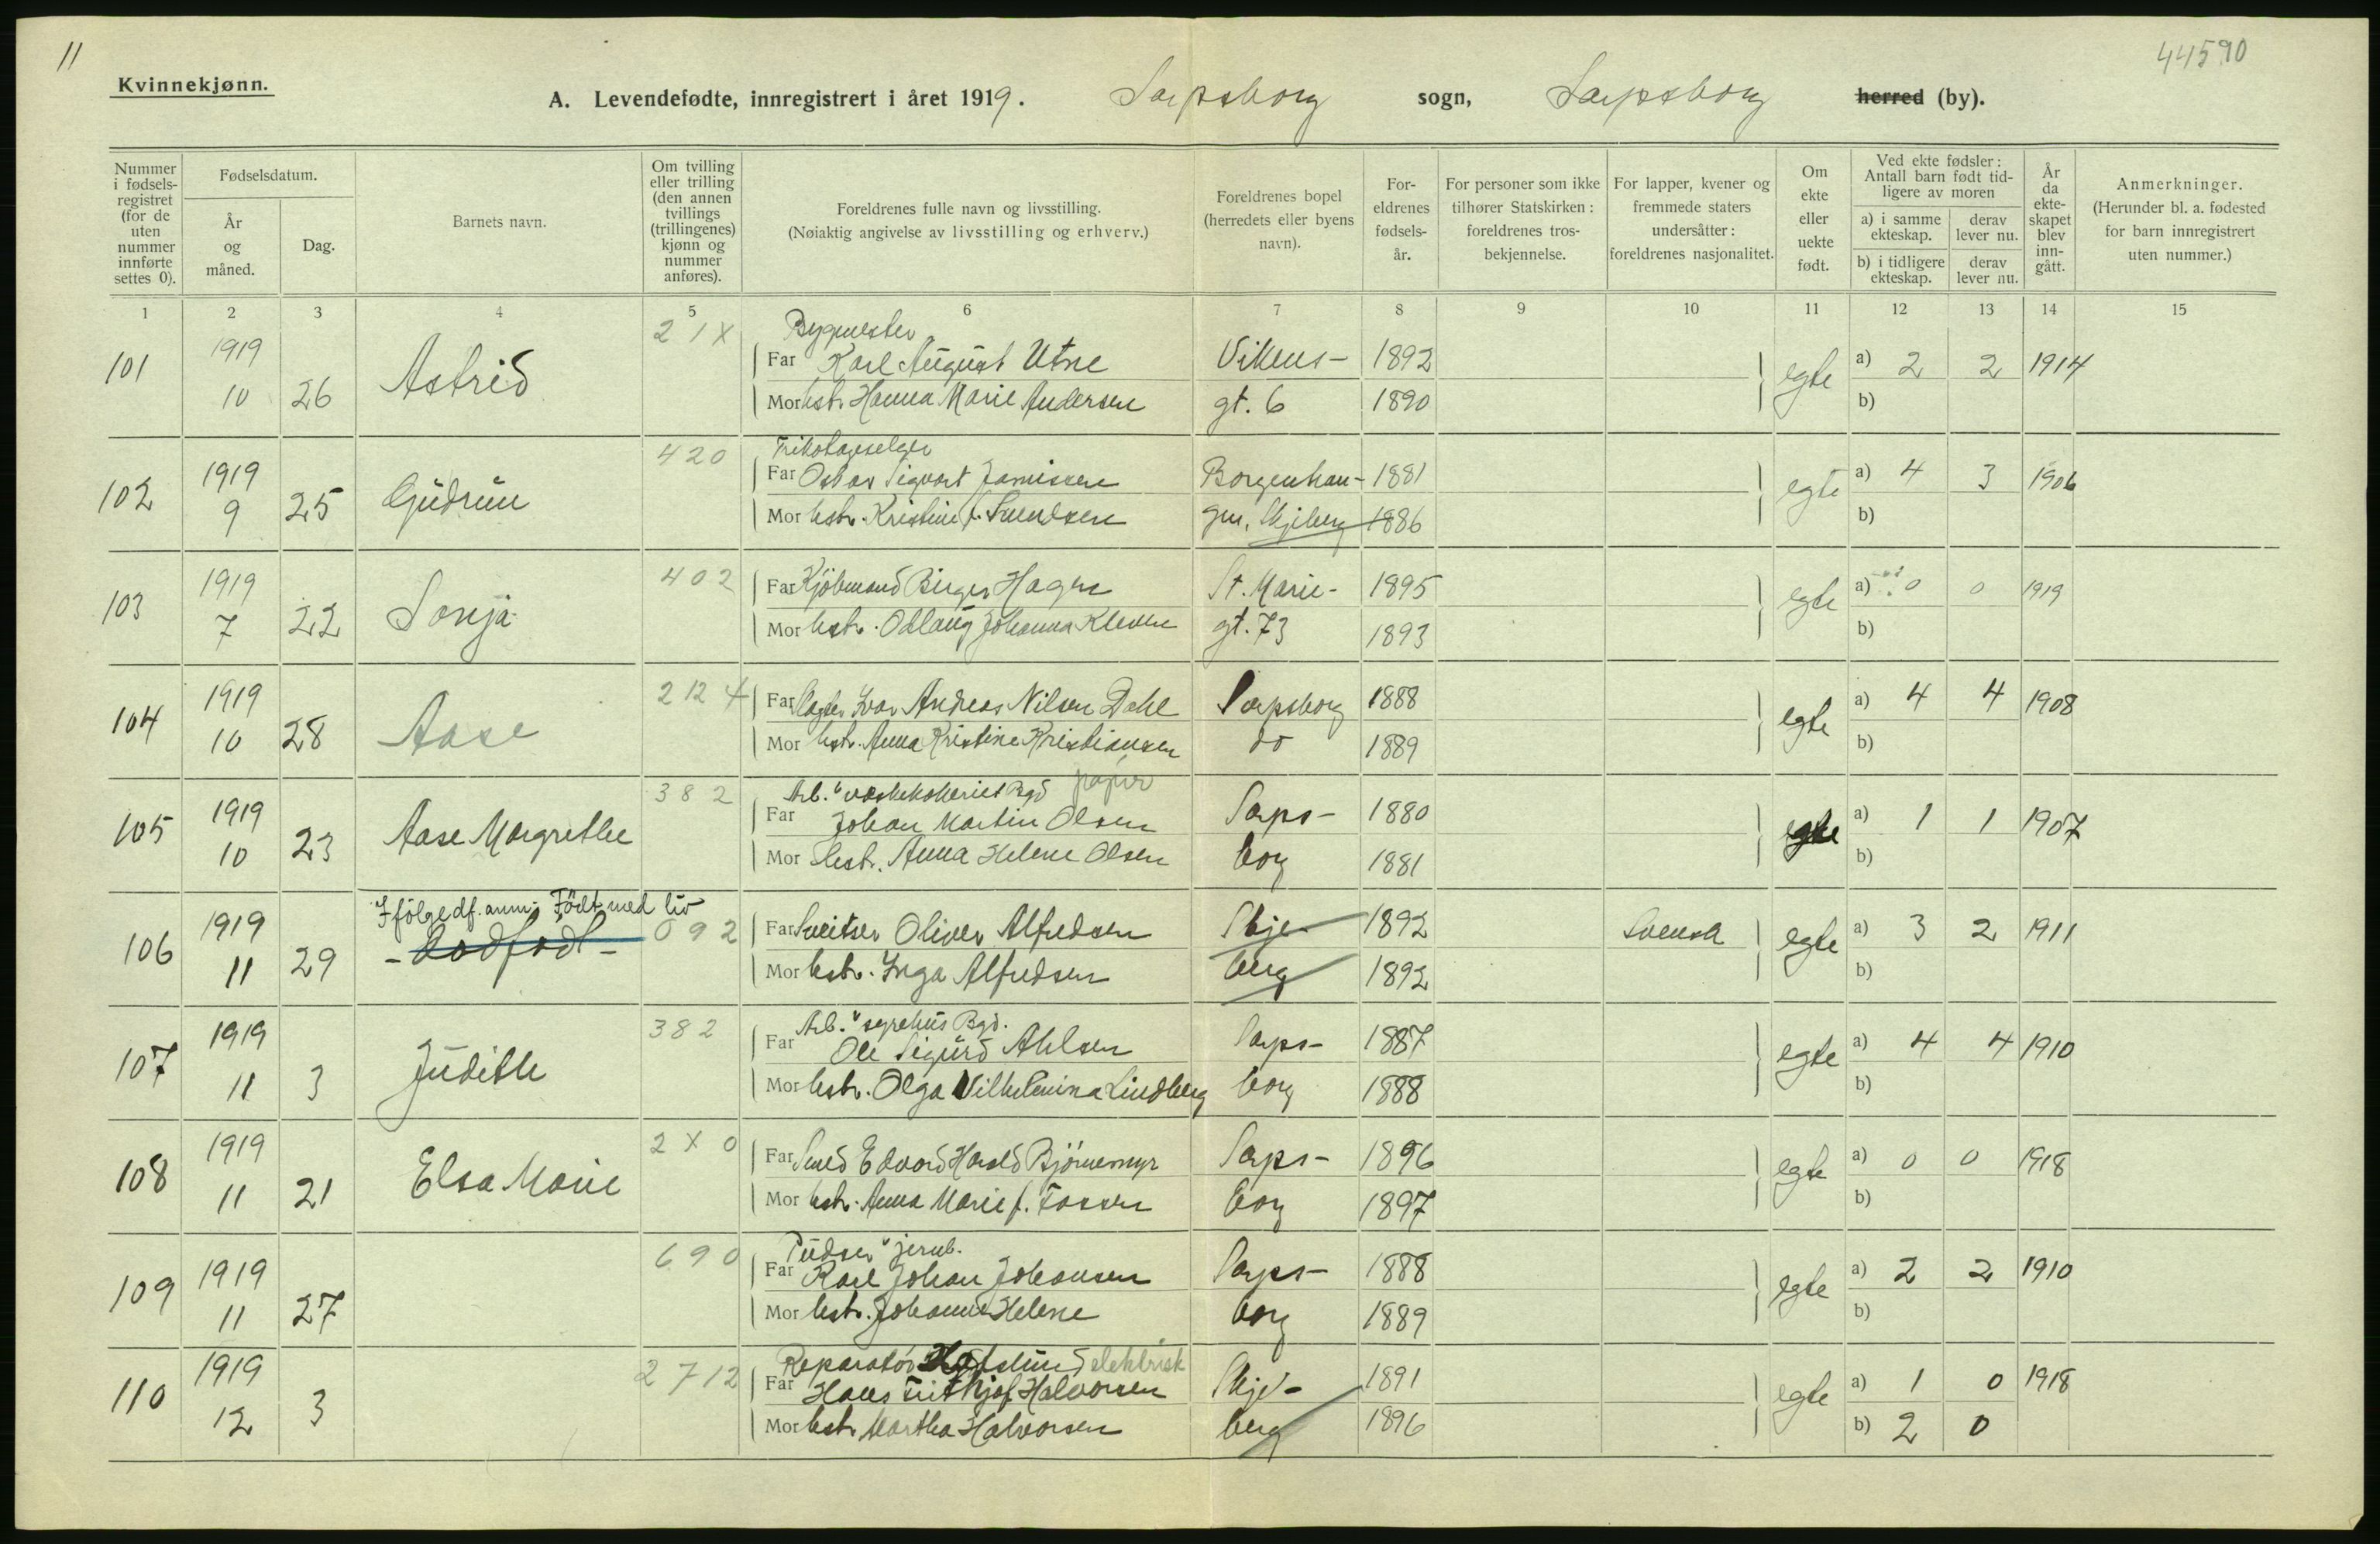 11
44590
Kvinnekjønn.
A. Levendefødte, innregistrert i året 1919. Sarpsborg sogn, Sarpsborg herred (by).
Nummer i fødsels-registret (for de uten nummer innførte settes 0).
Fødselsdatum.
År og måned.
Dag.
Barnets navn.
Om tvilling eller trilling (den annen tvillings (trillingenes) kjønn og nummer anføres).
Foreldrenes fulle navn og livsstilling.
(Nøiaktig angivelse av livsstilling og erhverv.)
Foreldrenes bopel (herredets eller byens navn).
For-eldrenes fødsels-år.
For personer som ikke tilhører Statskirken: foreldrenes tros-bekjennelse.
For lapper, kvener og fremmede staters undersåtter: foreldrenes nasjonalitet.
Om ekte eller uekte født.
Ved ekte fødsler: Antall barn født tid-ligere av moren
a) i samme ekteskap.
derav lever nu.
b) i tidligere ekteskap.
derav lever nu.
År da ekte-skapet blev inn-gått.
Anmerkninger.
(Herunder bl. a. fødested for barn innregistrert uten nummer.)
1 2 3 4 5 6 7 8 9 10 11 12 13 14 15
21X Bygmester
101 1919 Astrid Far Karl August Utne Vikens- 1892 egte a) 2 2 1914
10 26 Mor hstr. Hanna Marie Andersen gt. 6 1890 b)
420 Trikotageselger
102 1919 Gudrun Far Oskar Sigvart Jamissen Borgenhau- 1881 egte a) 4 3 1906
9 25 Mor hstr. Kristine f. Svendsen gen, Skjeberg 1886 b)
103 1919 Sonja 402 Far Kjøbmand Birger Hagen St. Marie- 1895 egte a) 0 0 1919
7 22 Mor hstr. Odlaug Johanna Kleven gt. 73 1893 b)
104 1919 Aase 212 4 Far Slagter Ivar Andreas Nilsen Dahl Sarpsborg 1888 egte a) 4 4 1908
10 28 Mor hstr. Anna Kristine Kristiansen do 1889 b)
382 Arb. v væskekokeriet Bgd papir
105 1919 Aase Margrethe Far Johan Martin Olsen Sarps- 1880 egte a) 1 1 1907
10 23 Mor hstr. Anna Helene Olsen borg 1881 b)
Ifölge df. anm. Född med liv
106 1919 - Dødfødt - 092 Far Sveitser Oliver Alfredsen Skje- 1892 Svensk egte a) 3 2 1911
11 29 Mor hstr. Inga Alfredsen berg 1892 b)
382 Arb. v syrehus Bgd.
107 1919 Judith Far Ole Sigurd Ahlsen Sarps- 1887 egte a) 4 4 1910
11 3 Mor hstr. Olga Vilhelmina Lindberg borg 1888 b)
108 1919 Elsa Marie 2X0 Far Smed Edvard Harald Bjørnemyr Sarps- 1896 egte a) 0 0 1918
11 21 Mor hstr. Anna Marie f. Fossen borg 1897 b)
690 Pudser v jernb.
109 1919 Far Karl Johan Johansen Sarps- 1888 egte a) 2 2 1910
11 27 Mor hstr. Johanne Helene borg 1889 b)
2712 Reparatør Hafslund elektrisk
110 1919 Far Hans Frithjof Halvorsen Skje- 1891 egte a) 1 0 1918
12 3 Mor hstr. Martha Halvorsen berg 1896 b) 2 0